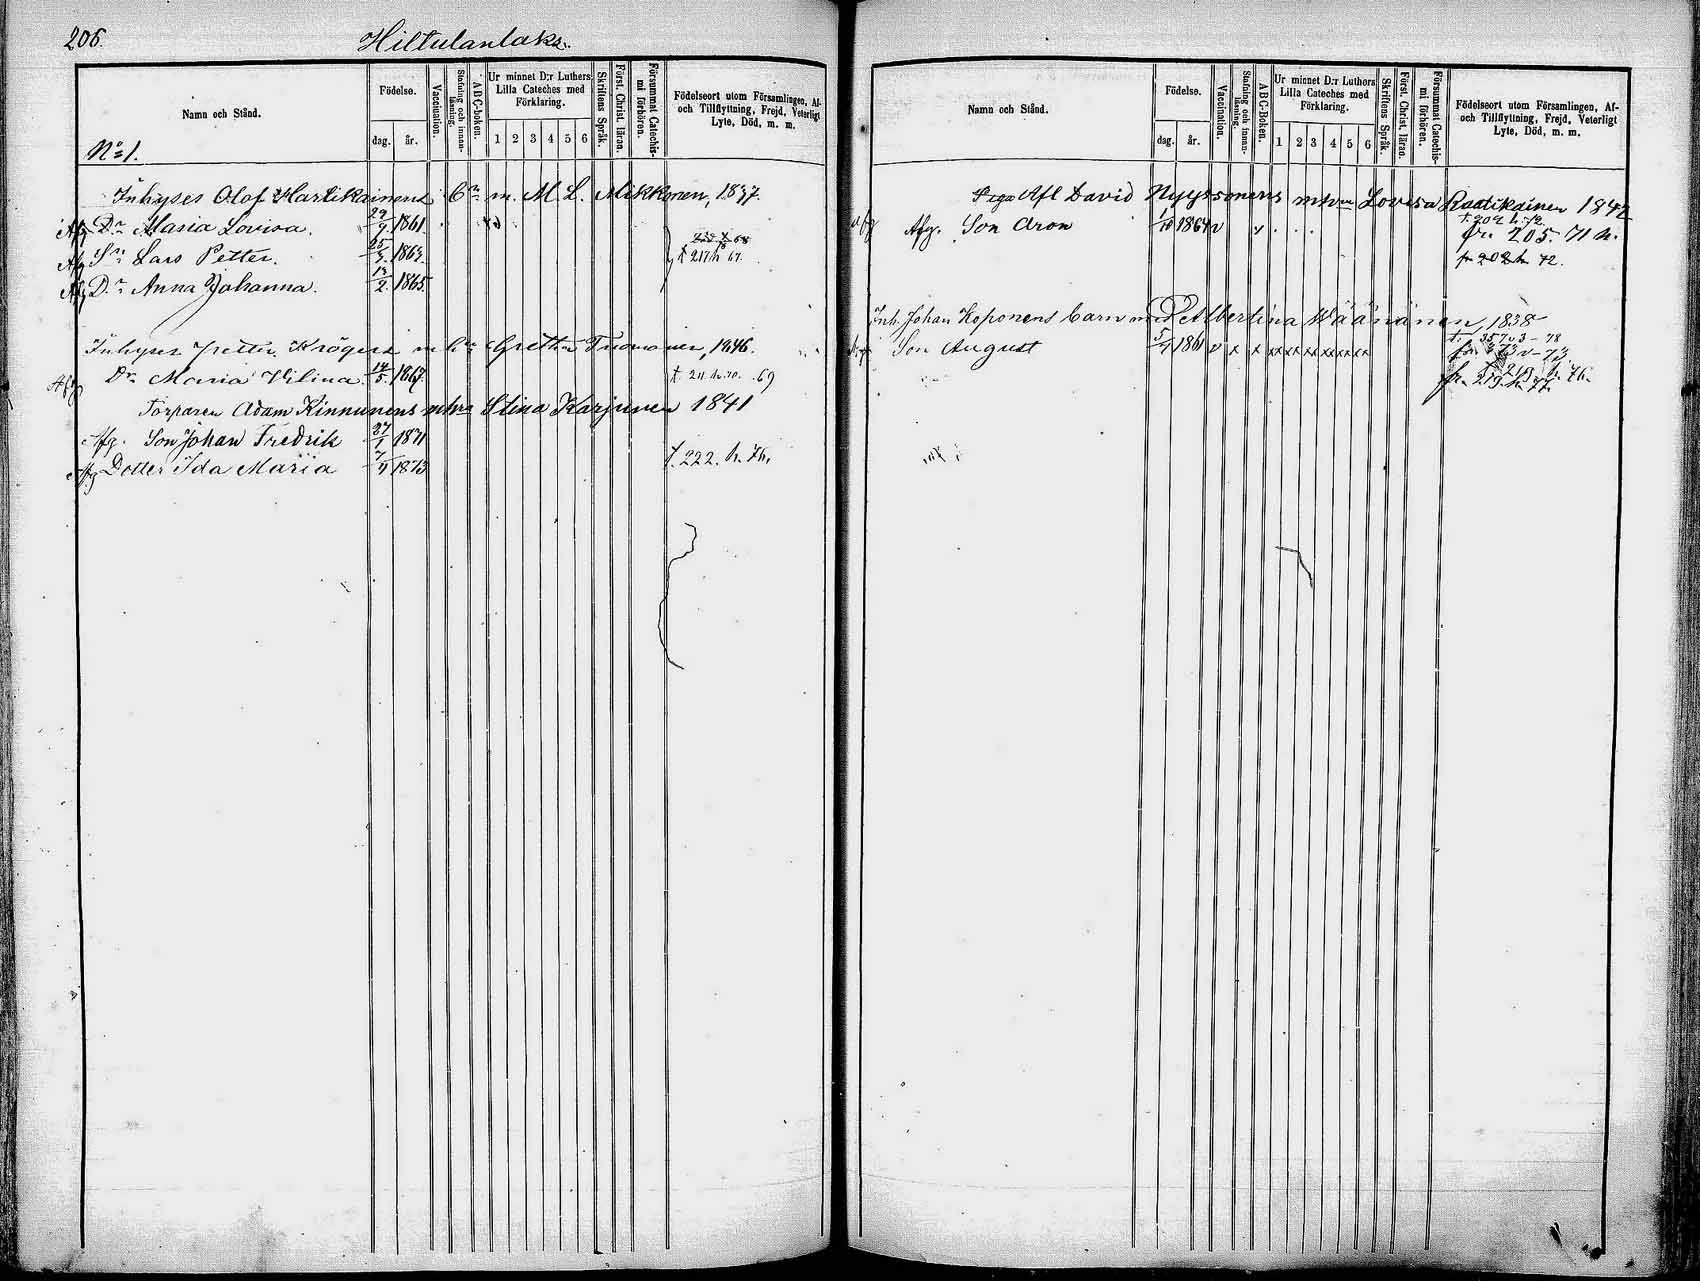 206.
Hiltulanlaks.
Namn och Stånd.
Födelse.
dag. år.
Vaccination.
Stafning och innan-läsning.
ABC-Boken.
Ur minnet D:r Luthers Lilla Cateches med Förklaring.
1 2 3 4 5 6
Skriftens Språk.
Först. Christ. läran.
Försummat Catechis-mi förhören.
Födelseort utom Församlingen, Af- och Tillflyttning, Frejd, Veterligt Lyte, Död, m. m.
No 1.
Inhyses Olof Hartikainens Bn m. M. L. Mikkonen, 1837.
Afg Dr Maria Lovisa. 1861
Afg Sn Lars Petter. 25/3. 1863. t 217 h 67.
Afg Dr Anna Johanna. 13/2. 1865.
Inhyses Petter Krögers m bn Gretha Tuomainen, 1846.
Afg Dr Maria Vilina. 14/5. 1867. t 211 h. 70. 69
Torparen Adam Kinnunens mhru Stina Karjunen 1841
Afg. Son Johan Fredrik 27/1 1871
Afg Dotter Ida Maria 7/4 1873 t. 222. h. 76.
Namn och Stånd.
Födelse.
dag. år.
Vaccination.
Stafning och innan-läsning.
ABC-Boken.
Ur minnet D:r Luthers Lilla Cateches med Förklaring.
1 2 3 4 5 6
Skriftens Språk.
Först. Christ. läran.
Försummat Catechis-mi förhören.
Födelseort utom Församlingen, Af- och Tillflyttning, Frejd, Veterligt Lyte, Död, m. m.
Afl David Nyyssonens mhru Lovisa Raatikainen 1842
t. 202 h. 72
afg Afg. Son Aron 1/10 1864 v fr. 205. 71 h.
fr 202 h 72.
Inh. Johan Koponens barn med Albertina Väänänen, 1838
t. 357 v 3 - 78
Afg Son August 5/4 1861 v x x xx xx xx xx xx xx fr. 373 v - 73.
t. 219 h. 76.
fr. 219. h. 77.